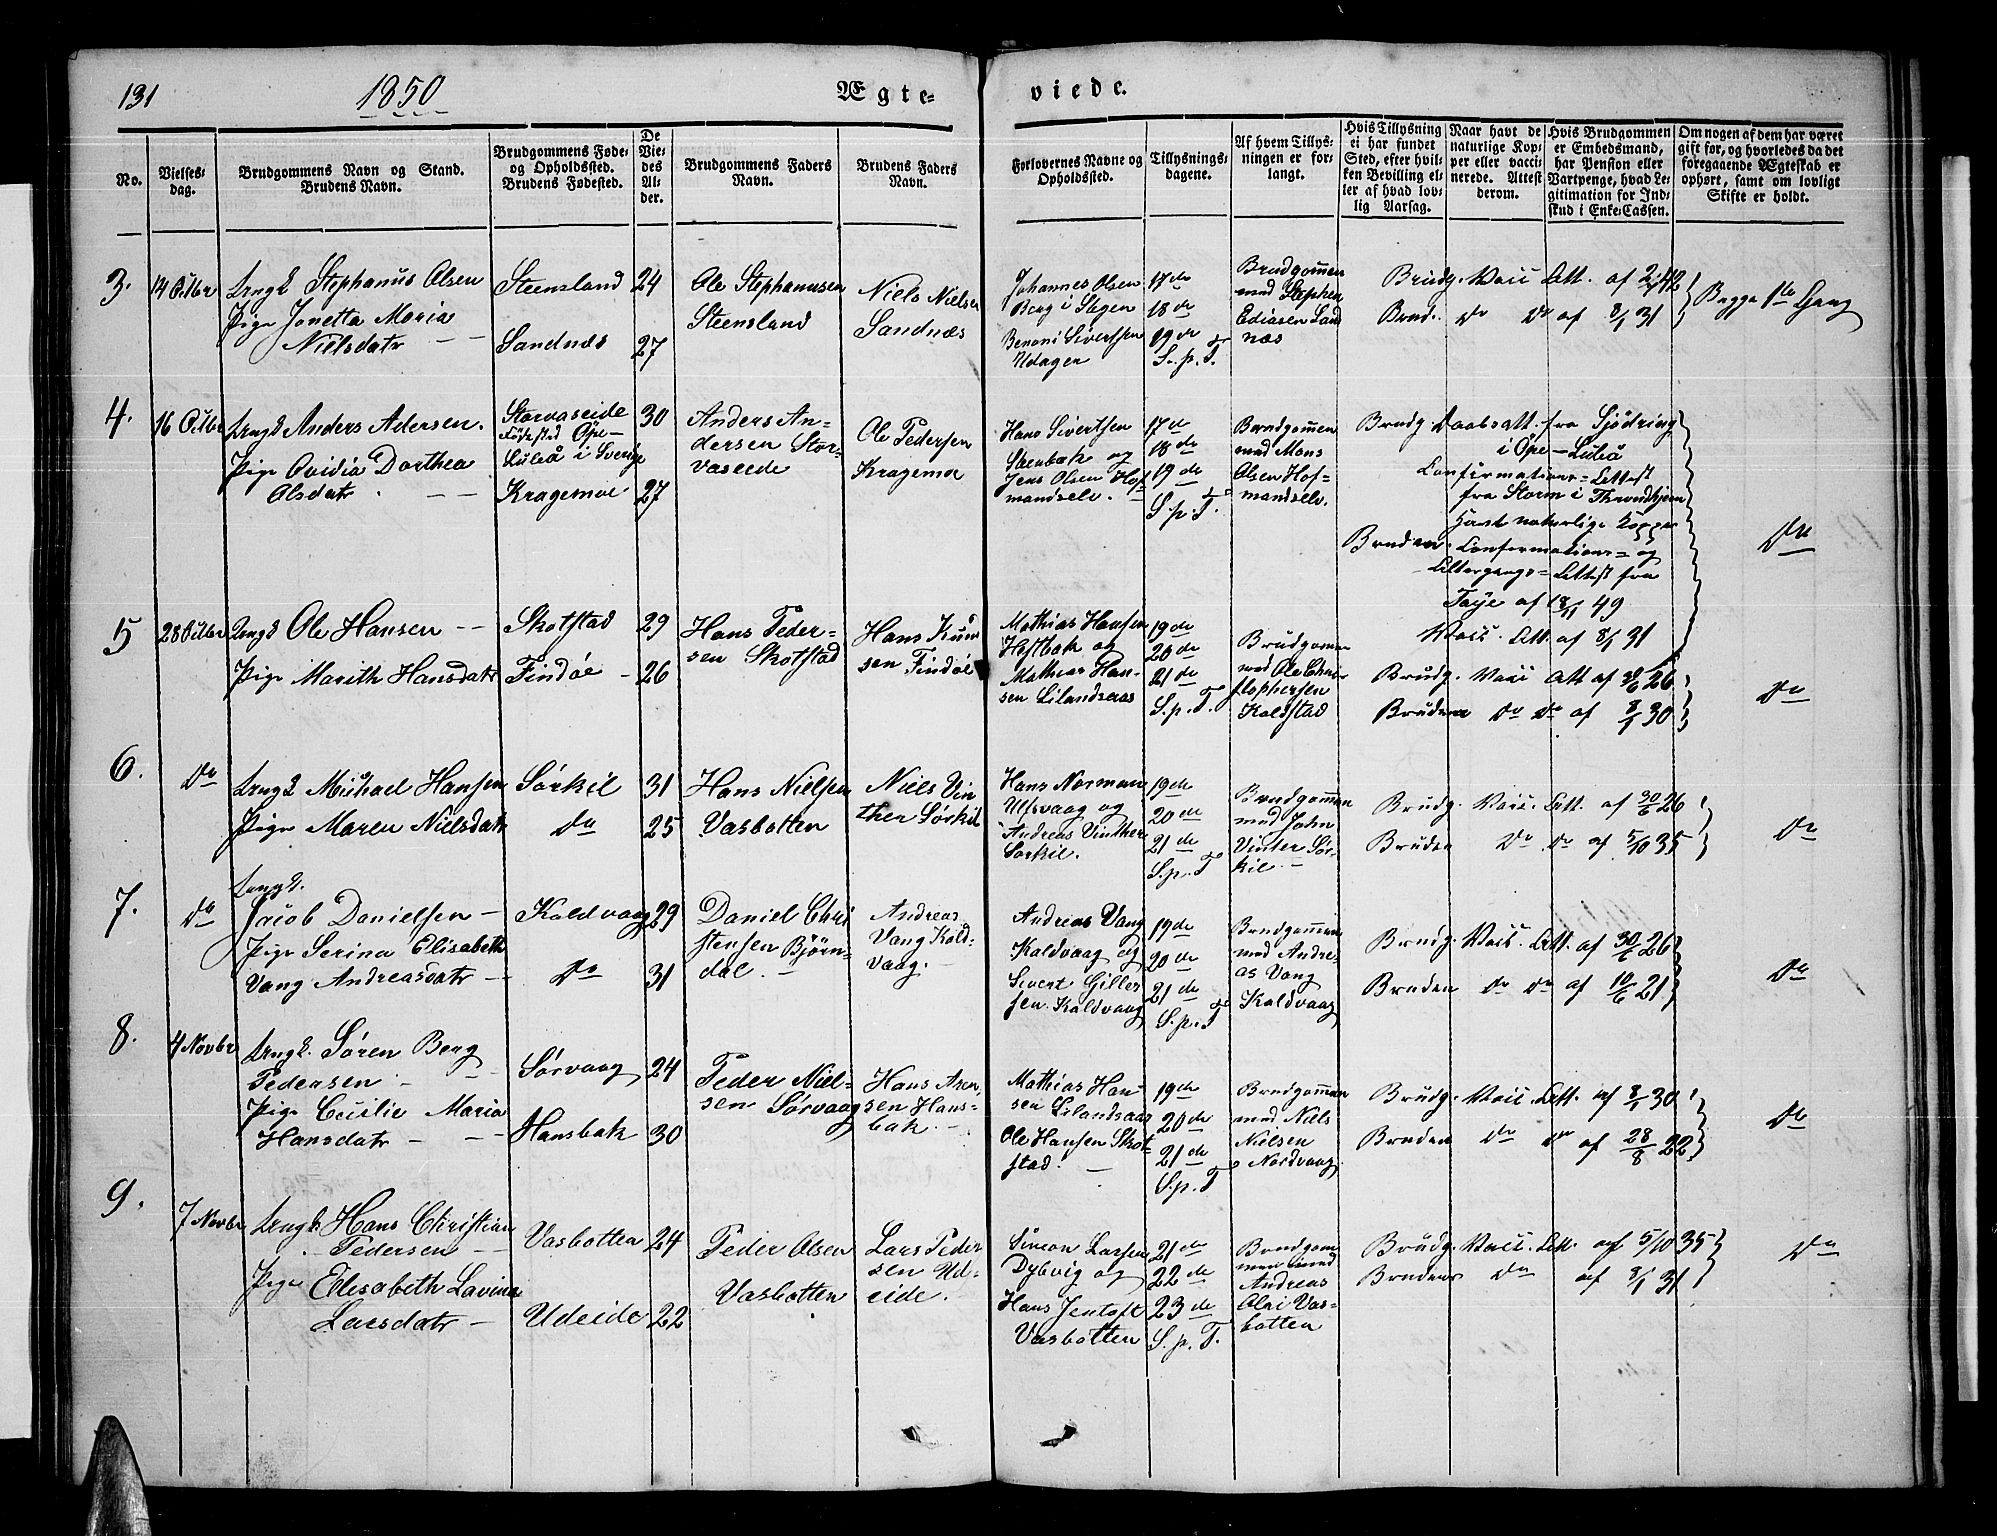 131
1850
Ægte-
viede.
No.
Vielses-
dag.
Brudgommens Navn og Stand.
Brudens Navn.
Brudgommens Føde-
og Opholdssted.
Brudens Fødested.
De
Vie-
des
Al-
der.
Brudgommens Faders
Navn.
Brudens Faders
Navn.
Forlovernes Navne og
Opholdssted.
Tillysnings-
dagene.
Af hvem Tillys-
ningen er for-
langt.
Hvis Tillysning
ei har fundet
Sted, efter hvil-
ken Bevilling el-
ler af hvad lov-
lig Aarsag.
Naar havt de
naturlige Kop-
per eller vacci-
nerede. Attest
derom.
Hvis Brudgommen
er Embedsmand,
har Pension eller
Vartpenge, hvad Le-
gitimation for Ind-
skud i Enke-Cassen.
Om nogen af dem har været
gift før, og hvorledes da det
foregaaende Ægteskab er
ophørt, samt om lovligt
Skifte er holdt.
3.
14 Octbr
Ungk Stephanus Olsen
Pige Jonetta Maria
Nielsdatr
Steensland
Sandnæs
24
27
Ole Stephanusen
Steensland
Niels Nielsen
Sandnæs
Johannes Olsen
Berg i Stegen
Benoni Sivertsen
Udager
17de
18de
19de
S. p. T.
Brudgommen
med Stephen
Ediasen Sand
næs
Brudg. Vacc Att. af
Brud. Do Do af 8/1 31
Begge 1te Gang
4.
16 Octbr
Ungk Anders Adersen.
Pige Ovidia Dorthea
Olsdatr
Storvaseide
Fødested Øpe-
Luleå i Sverige
Kragemoe
30
27
Anders An-
dersen Stor-
vaseide
Ole Pedersen
Kragemoe
Hans Sivertsen
Steenbak og
Jens Olsen Hof-
mandselv.
17de
18de
19de
S. p. T.
Brudgommen
med Mons
Olsen Hof-
mandselv.
Brudg. Daabsatt. fra Sjödring
i Öpe-Luleå
Confirmations-Attest
fra Storm i Throndhjem
Havt naturlige Kopper
Bruden. Confirmations- og
Altergangs-Attest fra
Taye af 18/11 49
Vacc. Att. af 8/1 31
Do
5
28 Octbr
Ungk Ole Hansen
Pige Marith Hansdatr
Skotstad
Findöe
29
26
Hans Peder-
sen Skotstad
Hans Knud
sen Findöe
Mathias Hansen
Hestbak og
Mathias Han-
sen Lilandsaas
19de
20de
21de
S. p. T.
Brudgommen
med Ole Chri-
stophersen
Koldstad
Brudg. Vacc Att af 30/6 26
Bruden Do Do af 8/1 30
Do
6.
Do
Ungk Michael Hansen
Pige Maren Nielsdatr
Sörkil
Do
31
25
Hans Nielsen
Vasbotten
Niels Vin
ther Sörkil
Hans Norman
Ulfsvaag og
Andreas Vinther
Sörkil.
19de
20de
21de
S. p. T
Brudgommen
med John
Vinter Sör-
kil.
Brudg. Vacc. Att. af 30/6 26
Bruden Do Do af 5/10 35
Do
7.
Do
Ungk.
Jacob Danielsen
Pige Serina Elisabeth
Vang Andreasdatr
Kaldvaag
Do
29
31
Daniel Chri
stensen Björn-
dal.
Andreas
Vang Kald-
vaag.
Andreas Vang
Kaldvaag og
Sivert Giller
sen Kaldvaag
19de
20de
21de
S. p. T
Brudgommen
med Andre-
as Vang
Kaldvaag
Brudg. Vacc. Att. af 30/6 26
Bruden Do Do af 10/6 21
Do
8.
4 Novbr
Ungk. Sören Berg
Pedersen
Pige Cecilie Maria
Hansdatr
Sörvaag
Hansbak
24
30
Peder Niel-
sen Sörvaag
Hans Aren-
sen Hans-
bak.
Mathias Han-
sen Lilandsaas
Ole Hansen Skot-
stad.
19de
20de
21de
S. p. T
Brudgommen
med Niels
Nielsen
Nordvaag
Brudg. Vacc. Att. af 8/1 30
Bruden Do Do af 28/8 22
Do
9.
7 Novbr
Ungk. Hans Christian
Pedersen
Pige Elisabeth Lavina
Larsdatr
Vasbotten
Udeide
24
22
Peder Olsen
Vasbotten
Lars Peder
sen Ud-
eide.
Simeon Larsen
Dybvig og
Hans Jentoft
Vasbotten
21de
22de
23de
S. p. T.
Brudgom-
men med
Andreas
Olai Vas-
botten
Brudg. Vacc. Att. af 5/10 35
Bruden Do af 8/1 31
Do